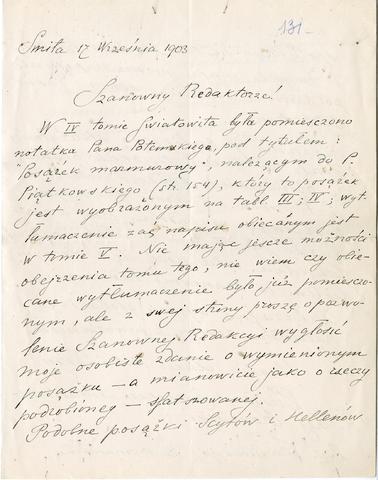 131.
Smiła 17 Września 1903
Szanowny Redaktorze!
W IV tomie Swiatowita była pomieszczono
notatka Pana Błemskiego, pod tytułem:
"Posążek marmurowy", należącym do P.
Piątkowskiego (st. 154), który to posążek
jest wyobrażonym na tabl III; IV; wyt-
łumaczenie zaś napisu obiecánym jest
w tomie V. Nie mając jeszcze możności
obejrzenia tomu tego, nie wiem czy obie-
cane wytłumaczenie było już pomieszczo-
nym, ale z swej strony proszę o pozwo-
lenie Szanownej Redakcyi wygłosić
moje osobiste zdanie o wymienionym
posążku — a mianowicie jako o rzeczy
podrobionej — sfałszowanej.
Podobne posążki Scytów i Hellenów